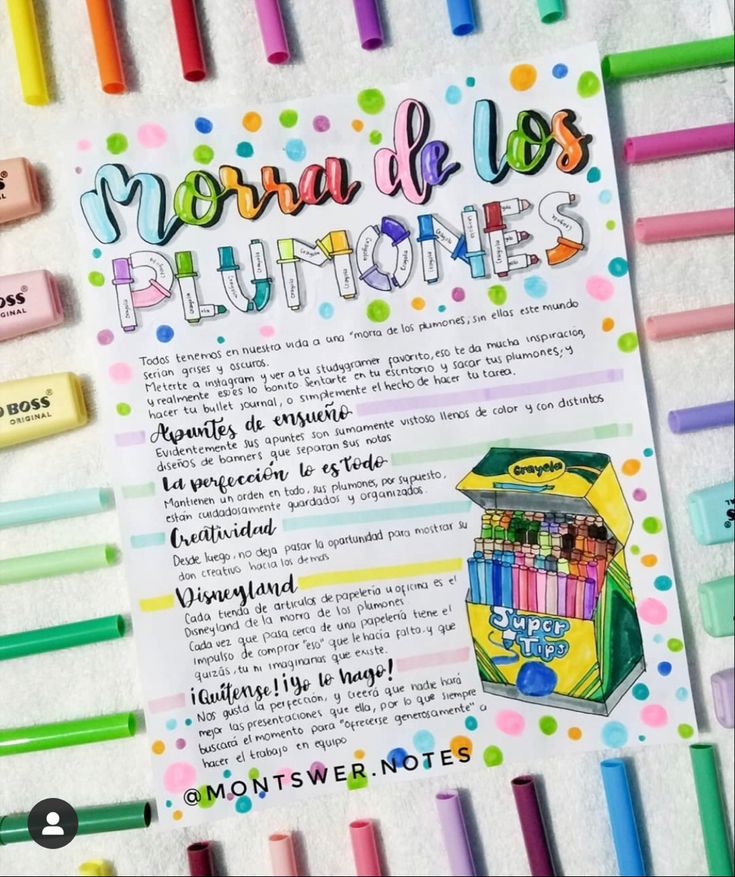 Morra de los
PLUMONES
Todos tenemos en nuestra vida a una "morra de los plumones", sin ellas este mundo
serían grises y oscuros.
Meterte a instagram y ver a tu studygramer favorito, eso te da mucha inspiración,
y realmente eso es lo bonito. Sentarte en tu escritorio y sacar tus plumones, y
hacer tu bullet journal, o simplemente el hecho de hacer tu tarea.
Apuntes de ensueño
Evidentemente sus apuntes son sumamente vistoso llenos de color y con distintos
diseños de banners que separan sus notas
La perfección lo es Todo
Mantienen un orden en todo, sus plumones, por supuesto,
están cuidadosamente guardados y organizados.
Creatividad
Desde luego, no deja pasar la oportunidad para mostrar su
don creativo hacia los demás
Disneyland
Cada tienda de artículos de papelería u oficina es el
Disneyland de la morra de los plumones
Cada vez que pasa cerca de una papelería tiene el
impulso de comprar "eso" que le hacía falta y que
quizás, tu ni imaginarias que existe.
¡Quítense! ¡Yo lo hago!
Nos gusta la perfección, y creerá que nadie hará
mejor las presentaciones que ella, por lo que siempre
buscará el momento para "ofrecerse generosamente" a
hacer el trabajo en equipo
@MONTSWER.NOTES
Crayola
Super
Tips
OSS
GINAL
BOSS
ORIGINAL